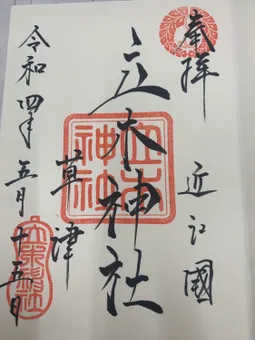 奉拝
近江國
立木神社
立木神社
草津
令和四年五月十五日